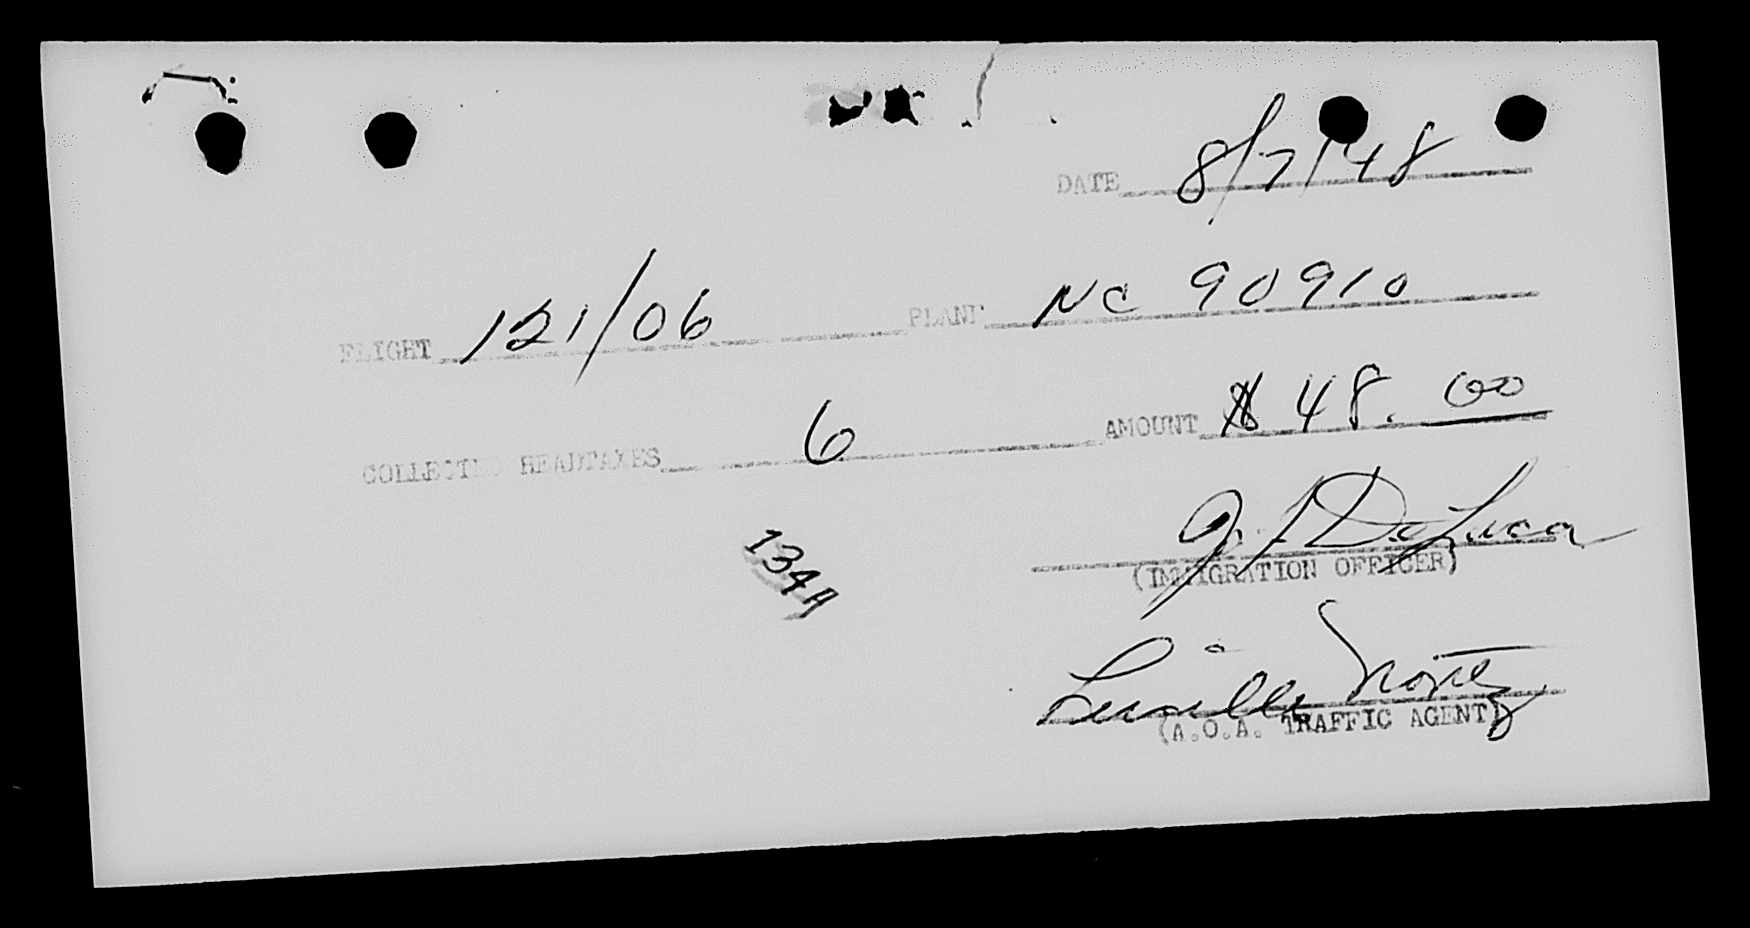 DATE 8/7/48
FLIGHT 121/06 PLANE NC 90910
COLLECTED HEADTAXES 6 AMOUNT $ 48.00
134A
J. DeLuca
(IMMIGRATION OFFICER)
Lucille
(A.O.A. TRAFFIC AGENT)